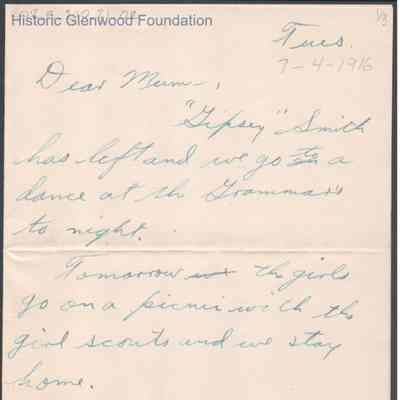 Historic Glenwood Foundation
1/3
Tues.
7-4-1916
Dear Mum-,
"Gipsey" Smith
has left and we go to a
dance at th Grammars
to night.
Tomorrow th girls
go on a picnic with the
girl scouts and we stay
home.